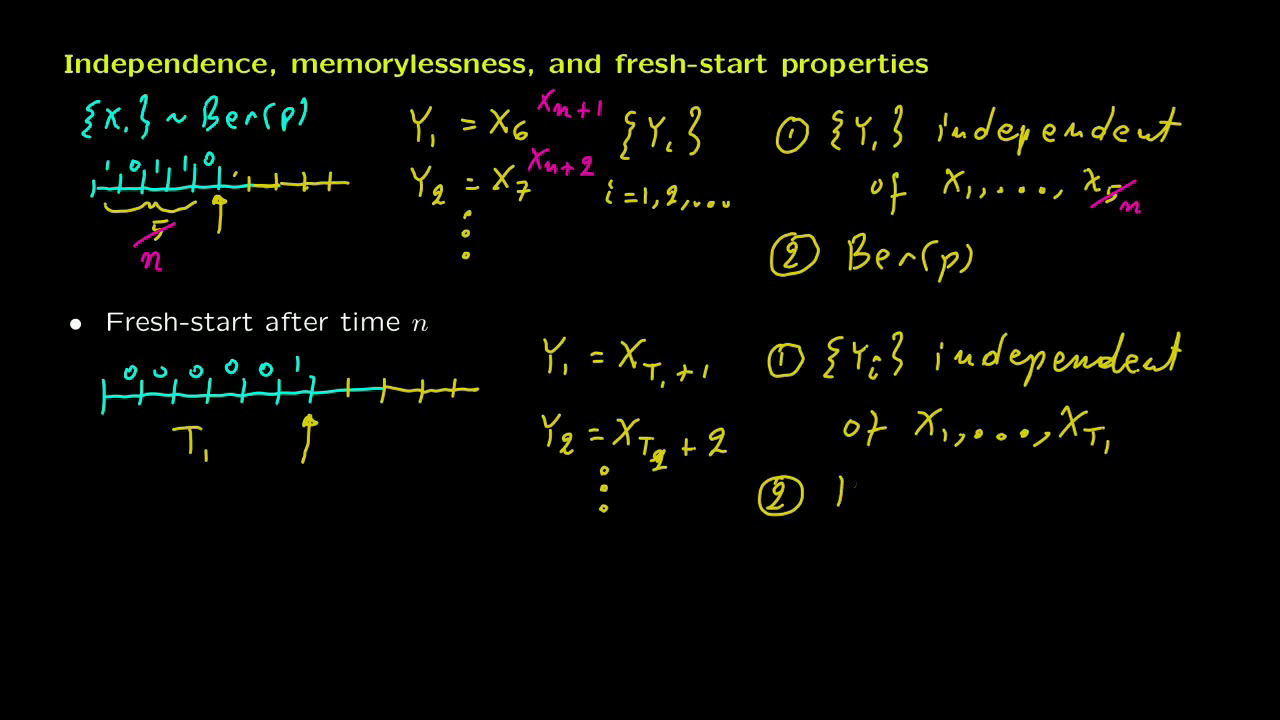 Independence, memorylessness, and fresh-start properties
{X.} ~ Ber(p)
1 0 1 1 0
5 n
Y₁ = X₆ Xₙ₊₁
Y₂ = X₇ Xₙ₊₂
⋮
{Yᵢ}
i = 1, 2, ...
① {Yᵢ} independent
of X₁, ..., X₅ n
② Ber(p)
• Fresh-start after time n
0 0 0 0 0 1
T₁
Y₁ = X_{T₁ + 1}
Y₂ = X_{T₂ + 2}
⋮
① {Yᵢ} independent
of X₁, ..., X_{T₁}
②